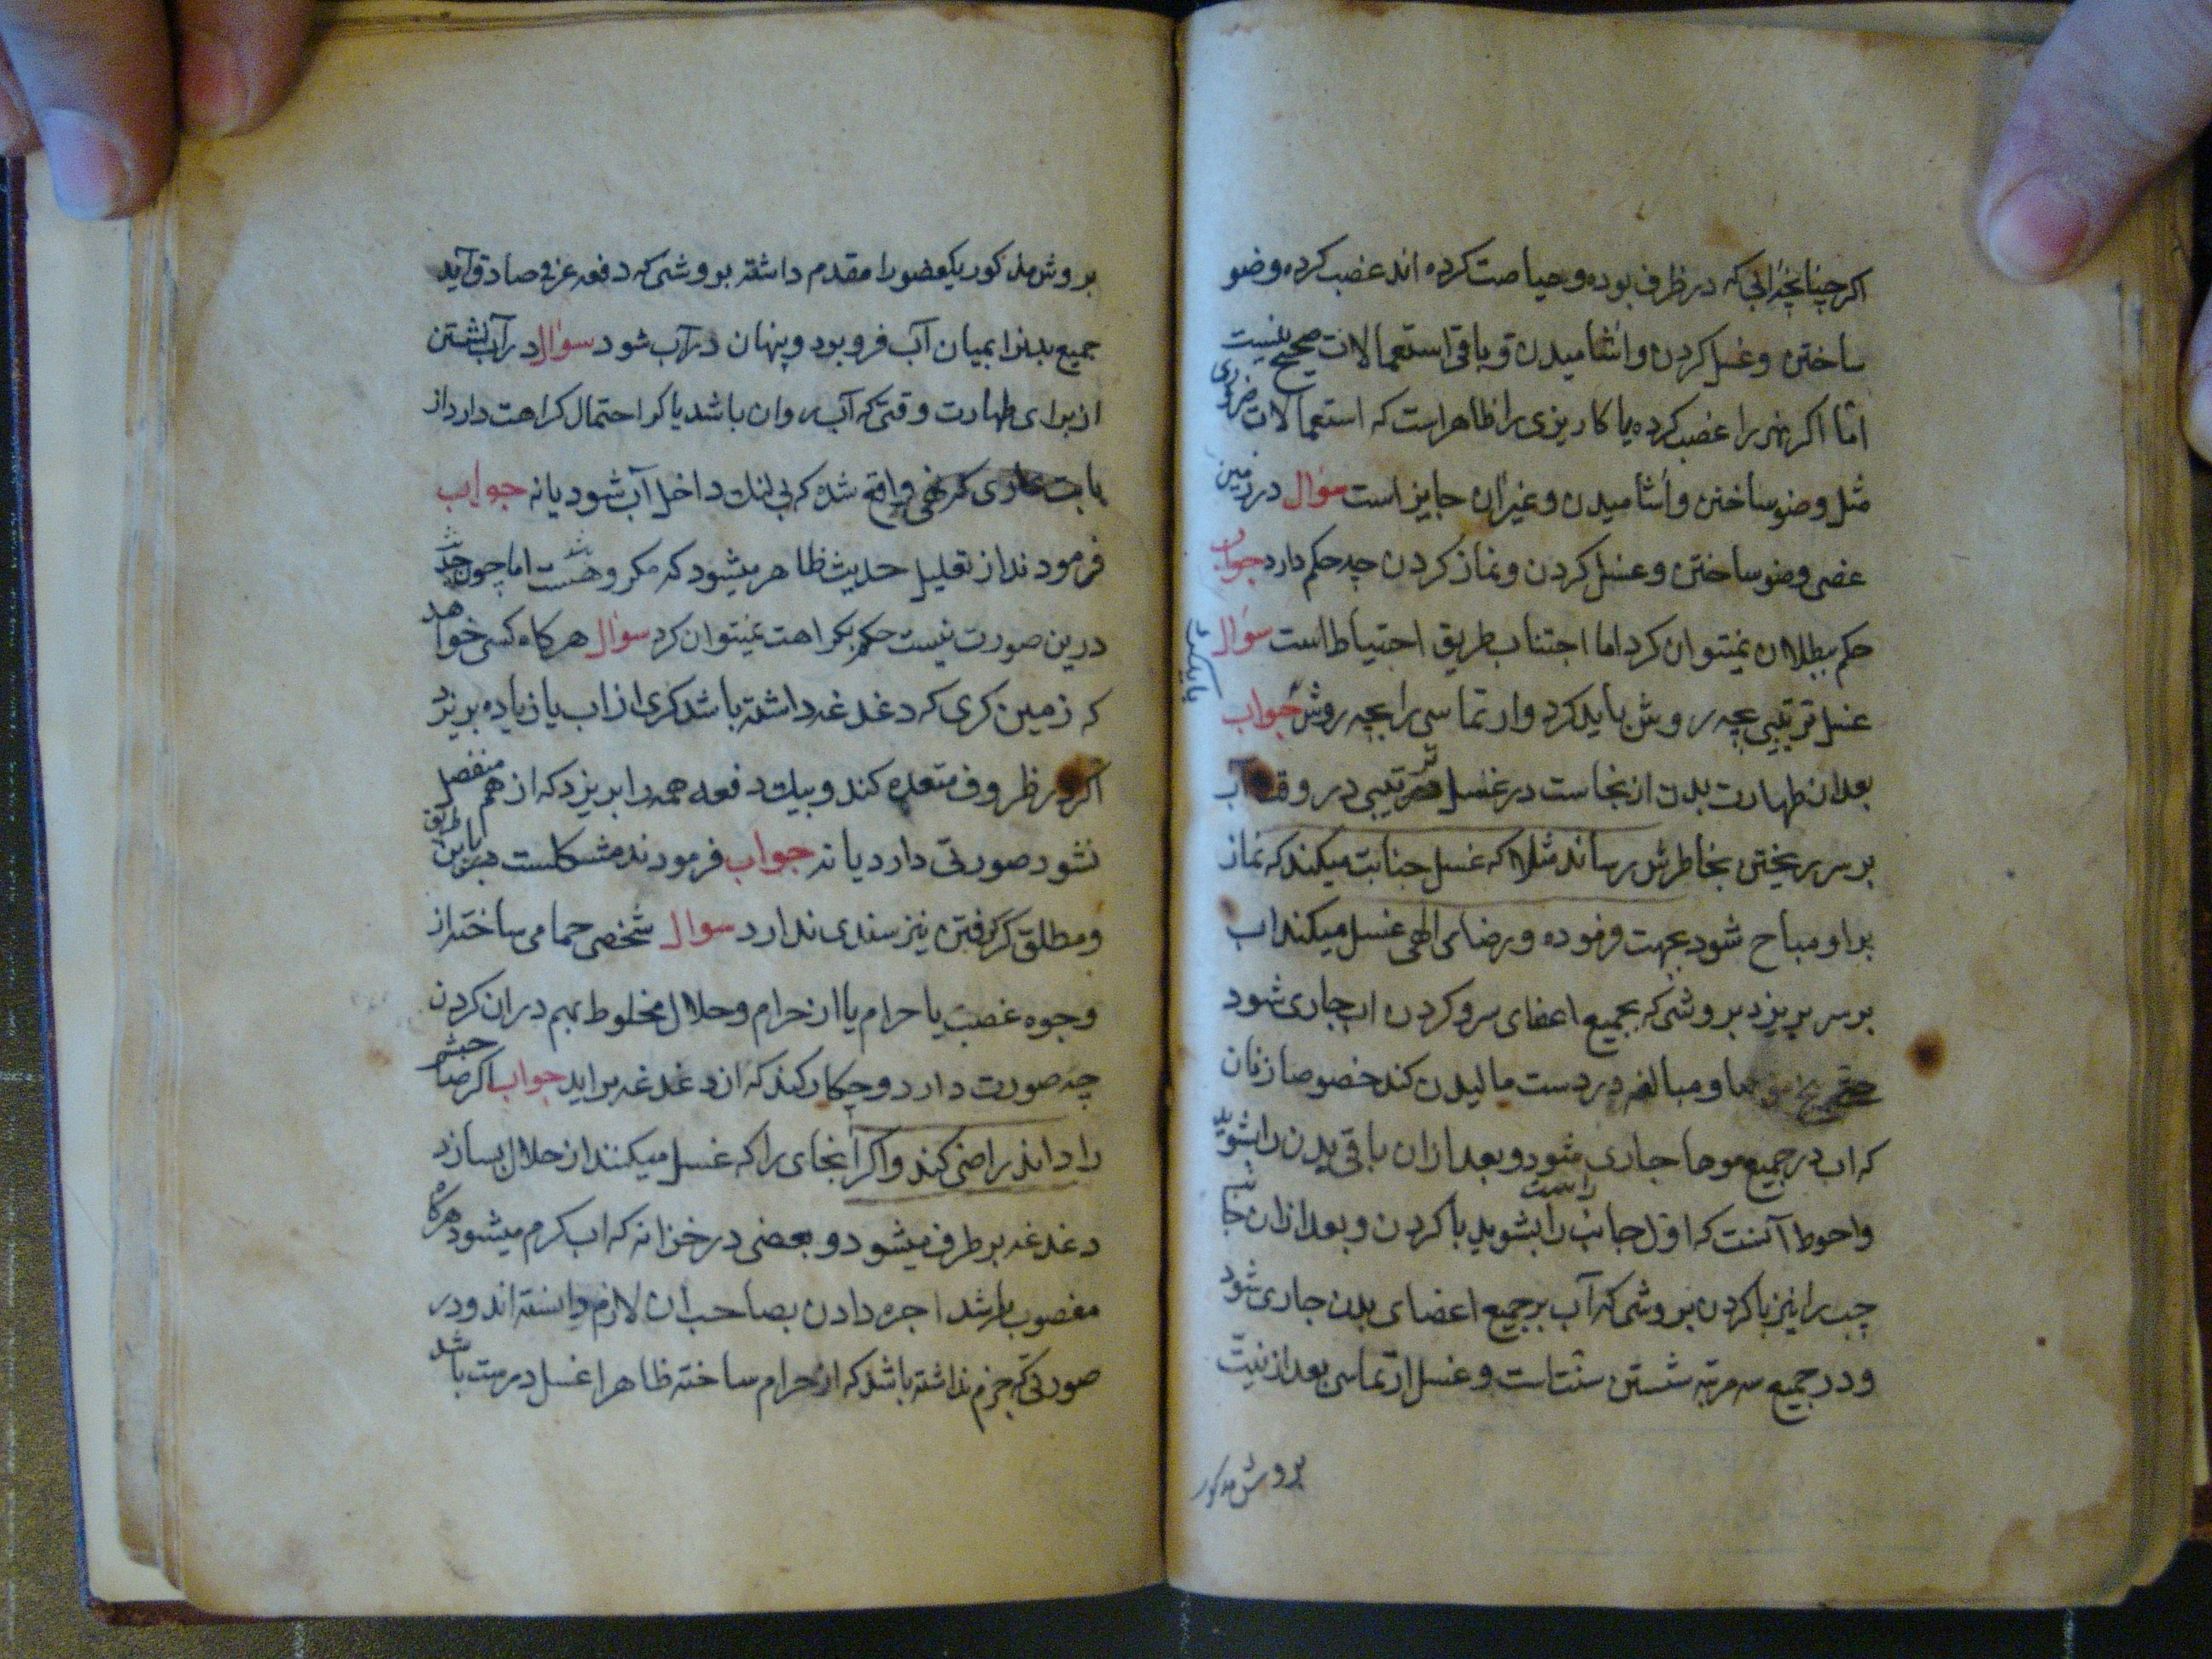 اکر چنانچه ابی که در ظرف بوده و حیاصت کرده اند غصب کرده وضو
ساختن و غسل کردن و اشامیدن و باقی استعمالات صحیح نیست
اما اکر نهر را غصب کرده یا کاریزی را ظاهر است که استعمالات ضروری
مثل وضو ساختن و اشامیدن و غیران جایز است سؤال در زمین
غصبی وضو ساختن و غسل کردن و نماز کردن چه حکم دارد جواب
حکم ببطلان نمیتوان کرد اما اجتناب طریق احتیاط است سؤال
غسل ترتیبی بچه روش باید کرد و ارتماسی را بچه روش جواب
بعد از طهارت بدن از نجاست در غسل ترتیبی در وقت آب
بر سر ریختن بخاطرش رساند مثلا که غسل جنابت میکند که نماز
بر او مباح شود بجهت فرموده و رضای الهی غسل میکند اب
بر سر بریزد بروشی که بجمیع اعضای سر و کردن اب جاری شود
و مبالغه در دست مالیدن کند خصوصا زنان
که اب در جمیع موها جاری شود و بعد ازان باقی بدن را بشوید
و احوط آنست که اول جانب راست را بشوید با کردن و بعد ازان جانب
چب را نیز با کردن بروشی که آب بر جمیع اعضای بدن جاری شود
و در جمیع سه مرتبه شستن سنت است و غسل ارتماسی بعد از نیت
بروش مذکور
بروش مذکور یکعضو را مقدم داشته بروشی که دفعه عرفی صادق آید
جمیع بدنرا بمیان آب فرو برد و پنهان در آب شود سؤال در آب نشستن
از برای طهارت وقتی که آب روان باشد یا کر احتمال کراهت دارد از
بابت که نهی واقع شده که بی لنك داخل آب شود یا نه جواب
فرمودند از تعلیل حدیث ظاهر میشود که مکروهست اما چون حدیث
درین صورت نیست حکم بکراهت نمیتوان کرد سؤال هرکاه کسی خواهد
که زمین کری که دغدغه داشته باشد کری از اب یا زیاده بریزد
اکر در ظروف متعدده کند و بیك دفعه همه را بریزد که از هم منفصل
نشود صورتی دارد یا نه جواب فرمودند مشکلست باین طریق
و مطلق کر کرفتن نیز سندی ندارد سؤال شخصی حمامی ساخته از
وجوه غصب یا حرام یا از حرام و حلال مخلوط بهم دران کردن
چه صورت دارد و چکار کند که از دغدغه براید جواب اکر صاحبش
را داند راضی کند و اکر آنجای را که غسل میکنند از حلال بسازد
دغدغه بر طرف میشود و بعضی در خزانه که اب کرم میشود هرکاه
مغصوب باشد اجره دادن بصاحب ان لازم دانسته اند و در
صورتی که جزم نداشته باشد که از حرام ساخته ظاهرا غسل درست باشد